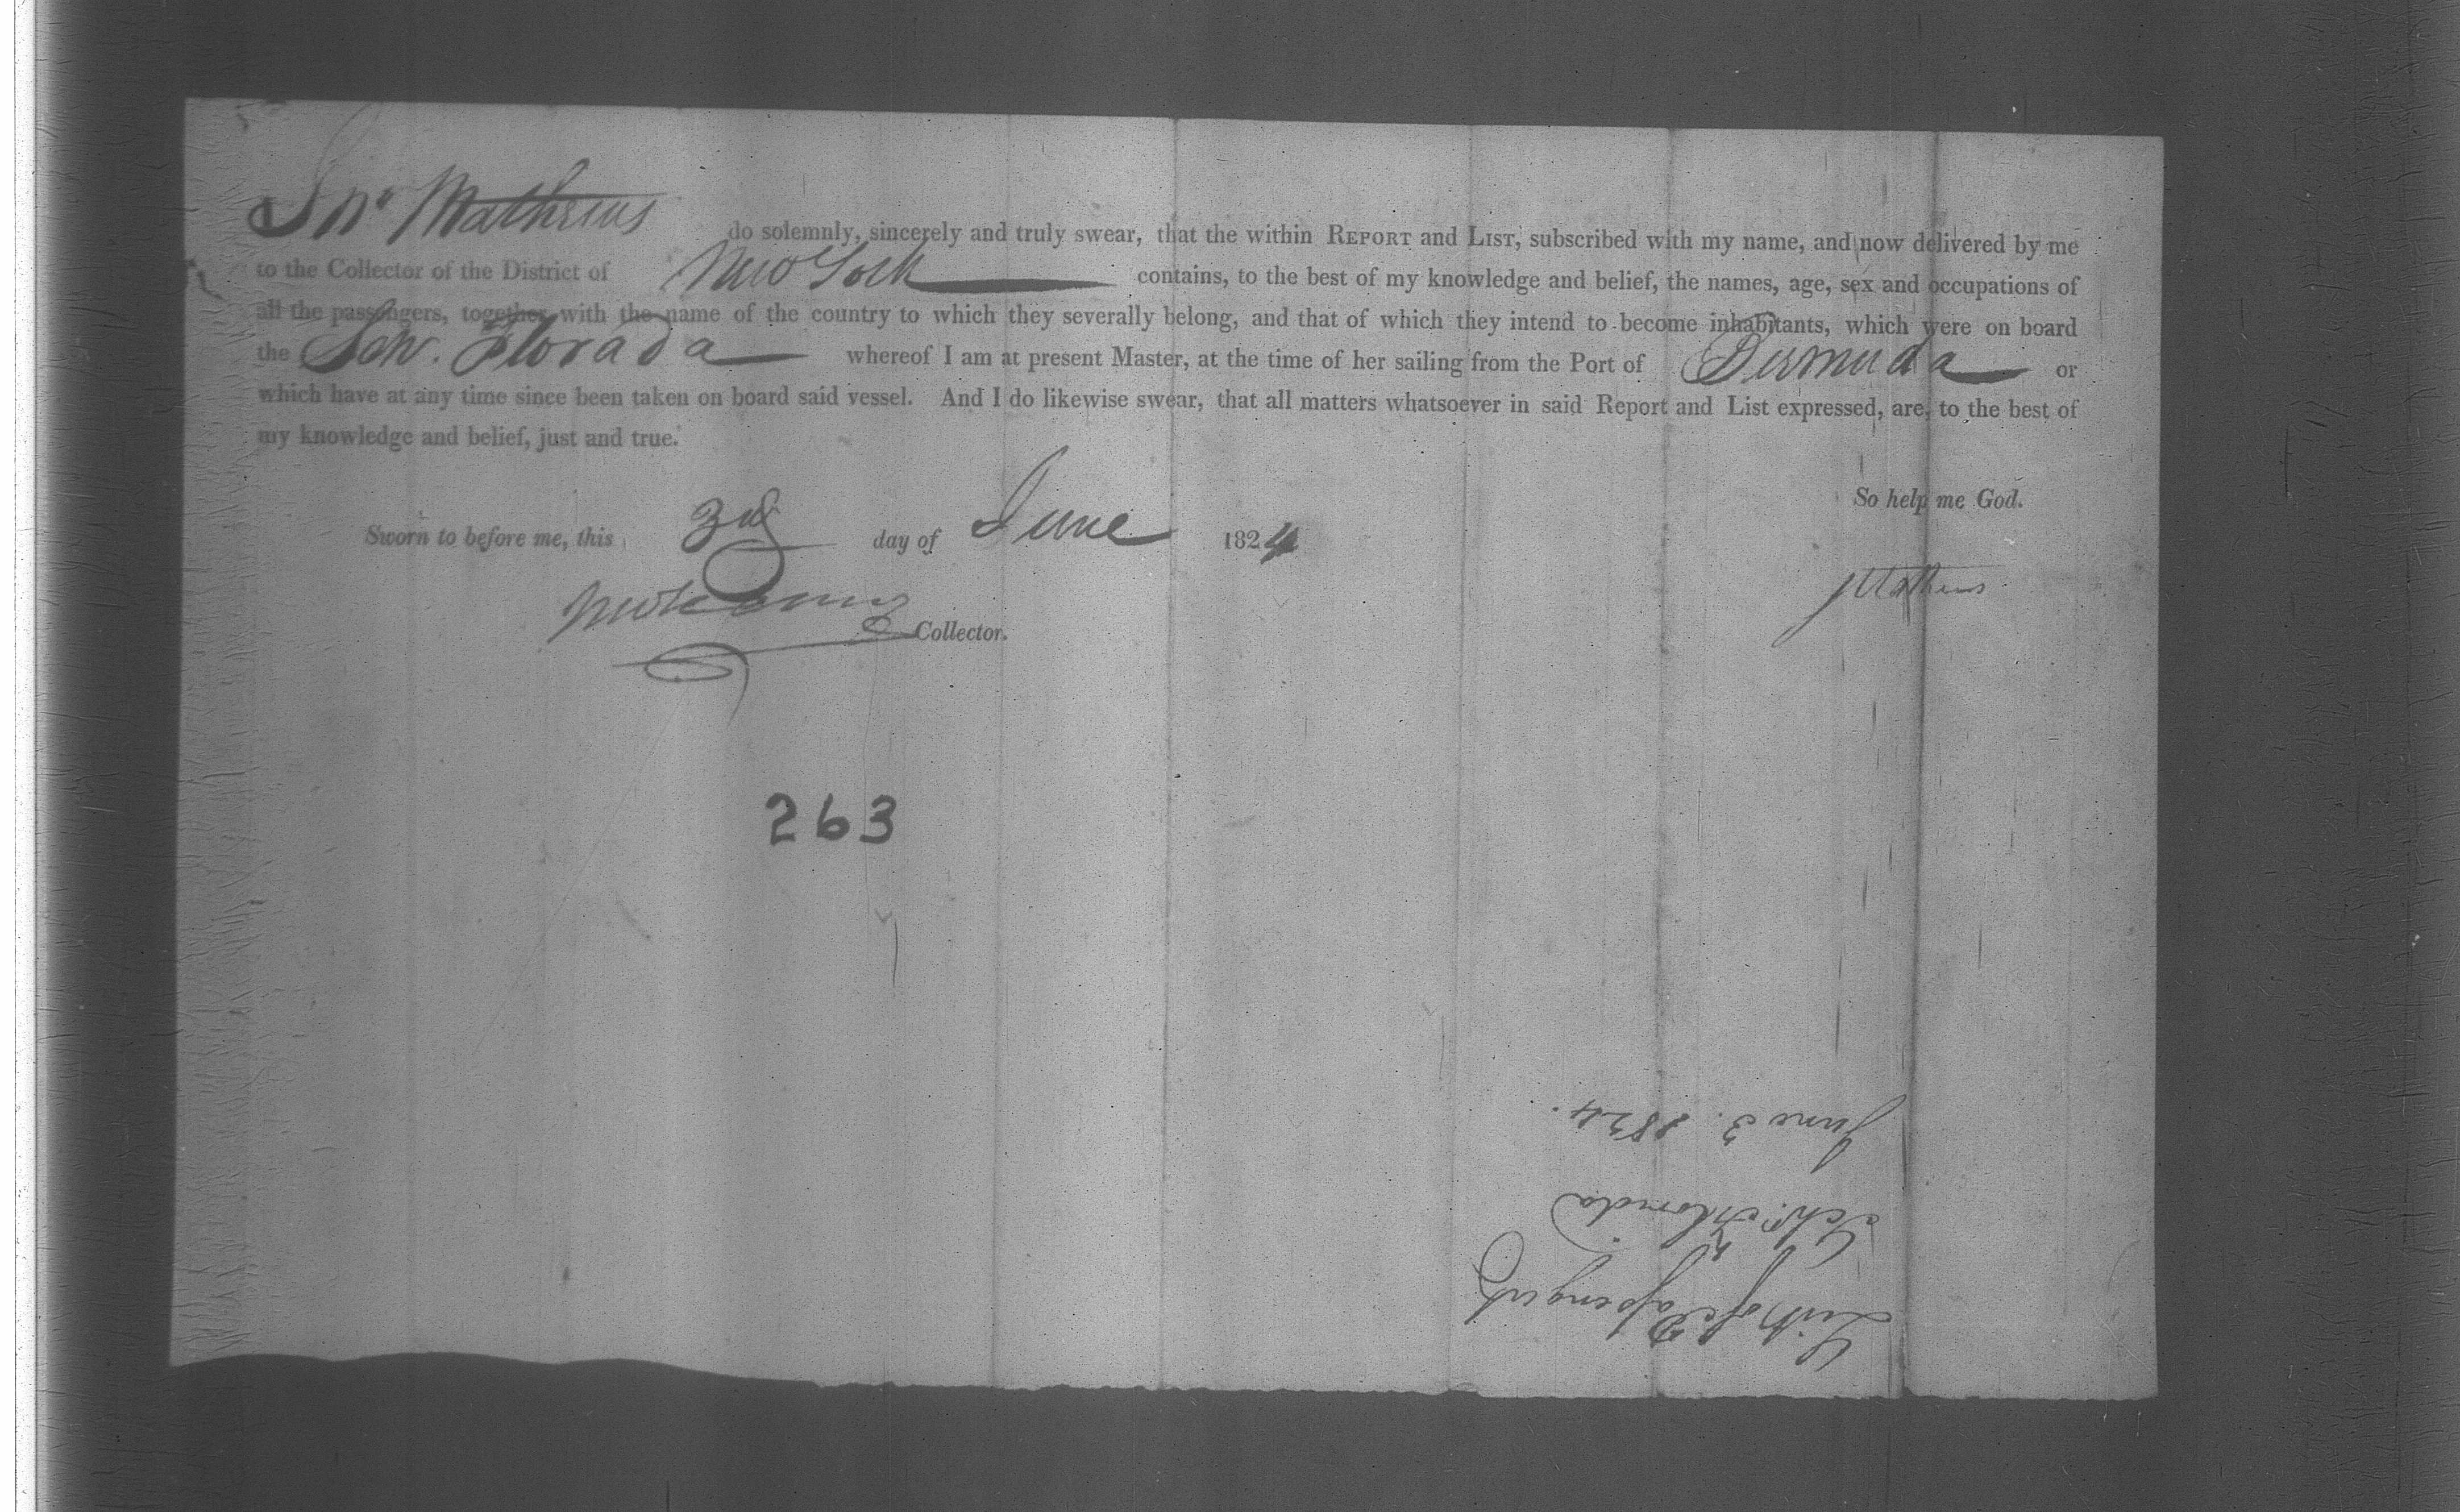 Jno Mathews do solemnly, sincerely and truly swear, that the within REPORT and LIST, subscribed with my name, and now delivered by me
to the Collector of the District of New York contains, to the best of my knowledge and belief, the names, age, sex and occupations of
all the passengers, together with the name of the country to which they severally belong, and that of which they intend to become inhabitants, which were on board
the Schr. Florada whereof I am at present Master, at the time of her sailing from the Port of Bermuda or
which have at any time since been taken on board said vessel. And I do likewise swear, that all matters whatsoever in said Report and List expressed, are, to the best of
my knowledge and belief, just and true.
So help me God.
Sworn to before me, this 3d day of June 1824
JMathews
Collector.
263
List of Passengers
Schr. Florida
June 3. 1824.